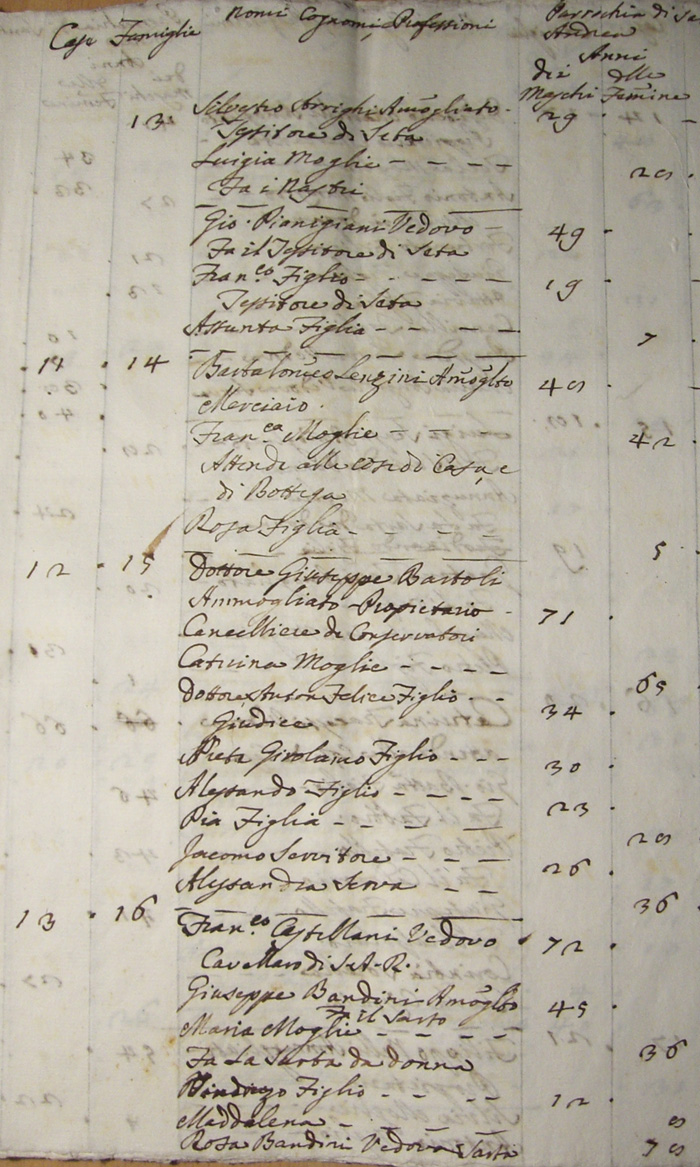 Case Famiglie Nomi Cognomi, e Professioni Parrochia di S.
Andrea
Anni
dei delle
Maschi Femine
13 Silvestro Arrighi Amogliato - 29
Tessitore di Seta
Luigia Moglie - - - - 20
Fa i Nastri
Gio. Pianigiani Vedovo - 49
Fa il Tessitore di Seta
Fran.co Figlio - - - - - 19
Tessitore di Seta
Assunta Figlia - - - - 7
11 14 Bartalomeo Lenzini Amoglto 40
Merciaio.
Fran.ca Moglie - - - 42
Attende alle cose di Casa, e
di Bottega
Rosa Figlia - - - - 5
12 15 Dottore Giuseppe Bartoli
Ammogliato Propietario - 71
Cancelliere de Conservatori
Caterina Moglie - - - - 65
Dottore Anton Felice Figlio - - 34
Giudice
Girolamo Figlio - - - 30
Alessandro Figlio - - - - 23
Pia Figlia - - - - 20
Jacomo Servitore - - - 26
Alessandra Serva - - 36
13 16 Fran.co Castellani Vedovo 72
di S. A. R.
Giuseppe Bandini Amoglto 45
Fa il Sarto
Maria Moglie - - - - 36
Fa La Sarta da donna
Figlio - - - - 12
Maddalena - - - - -
Rosa Bandini Vedova Sarta 70